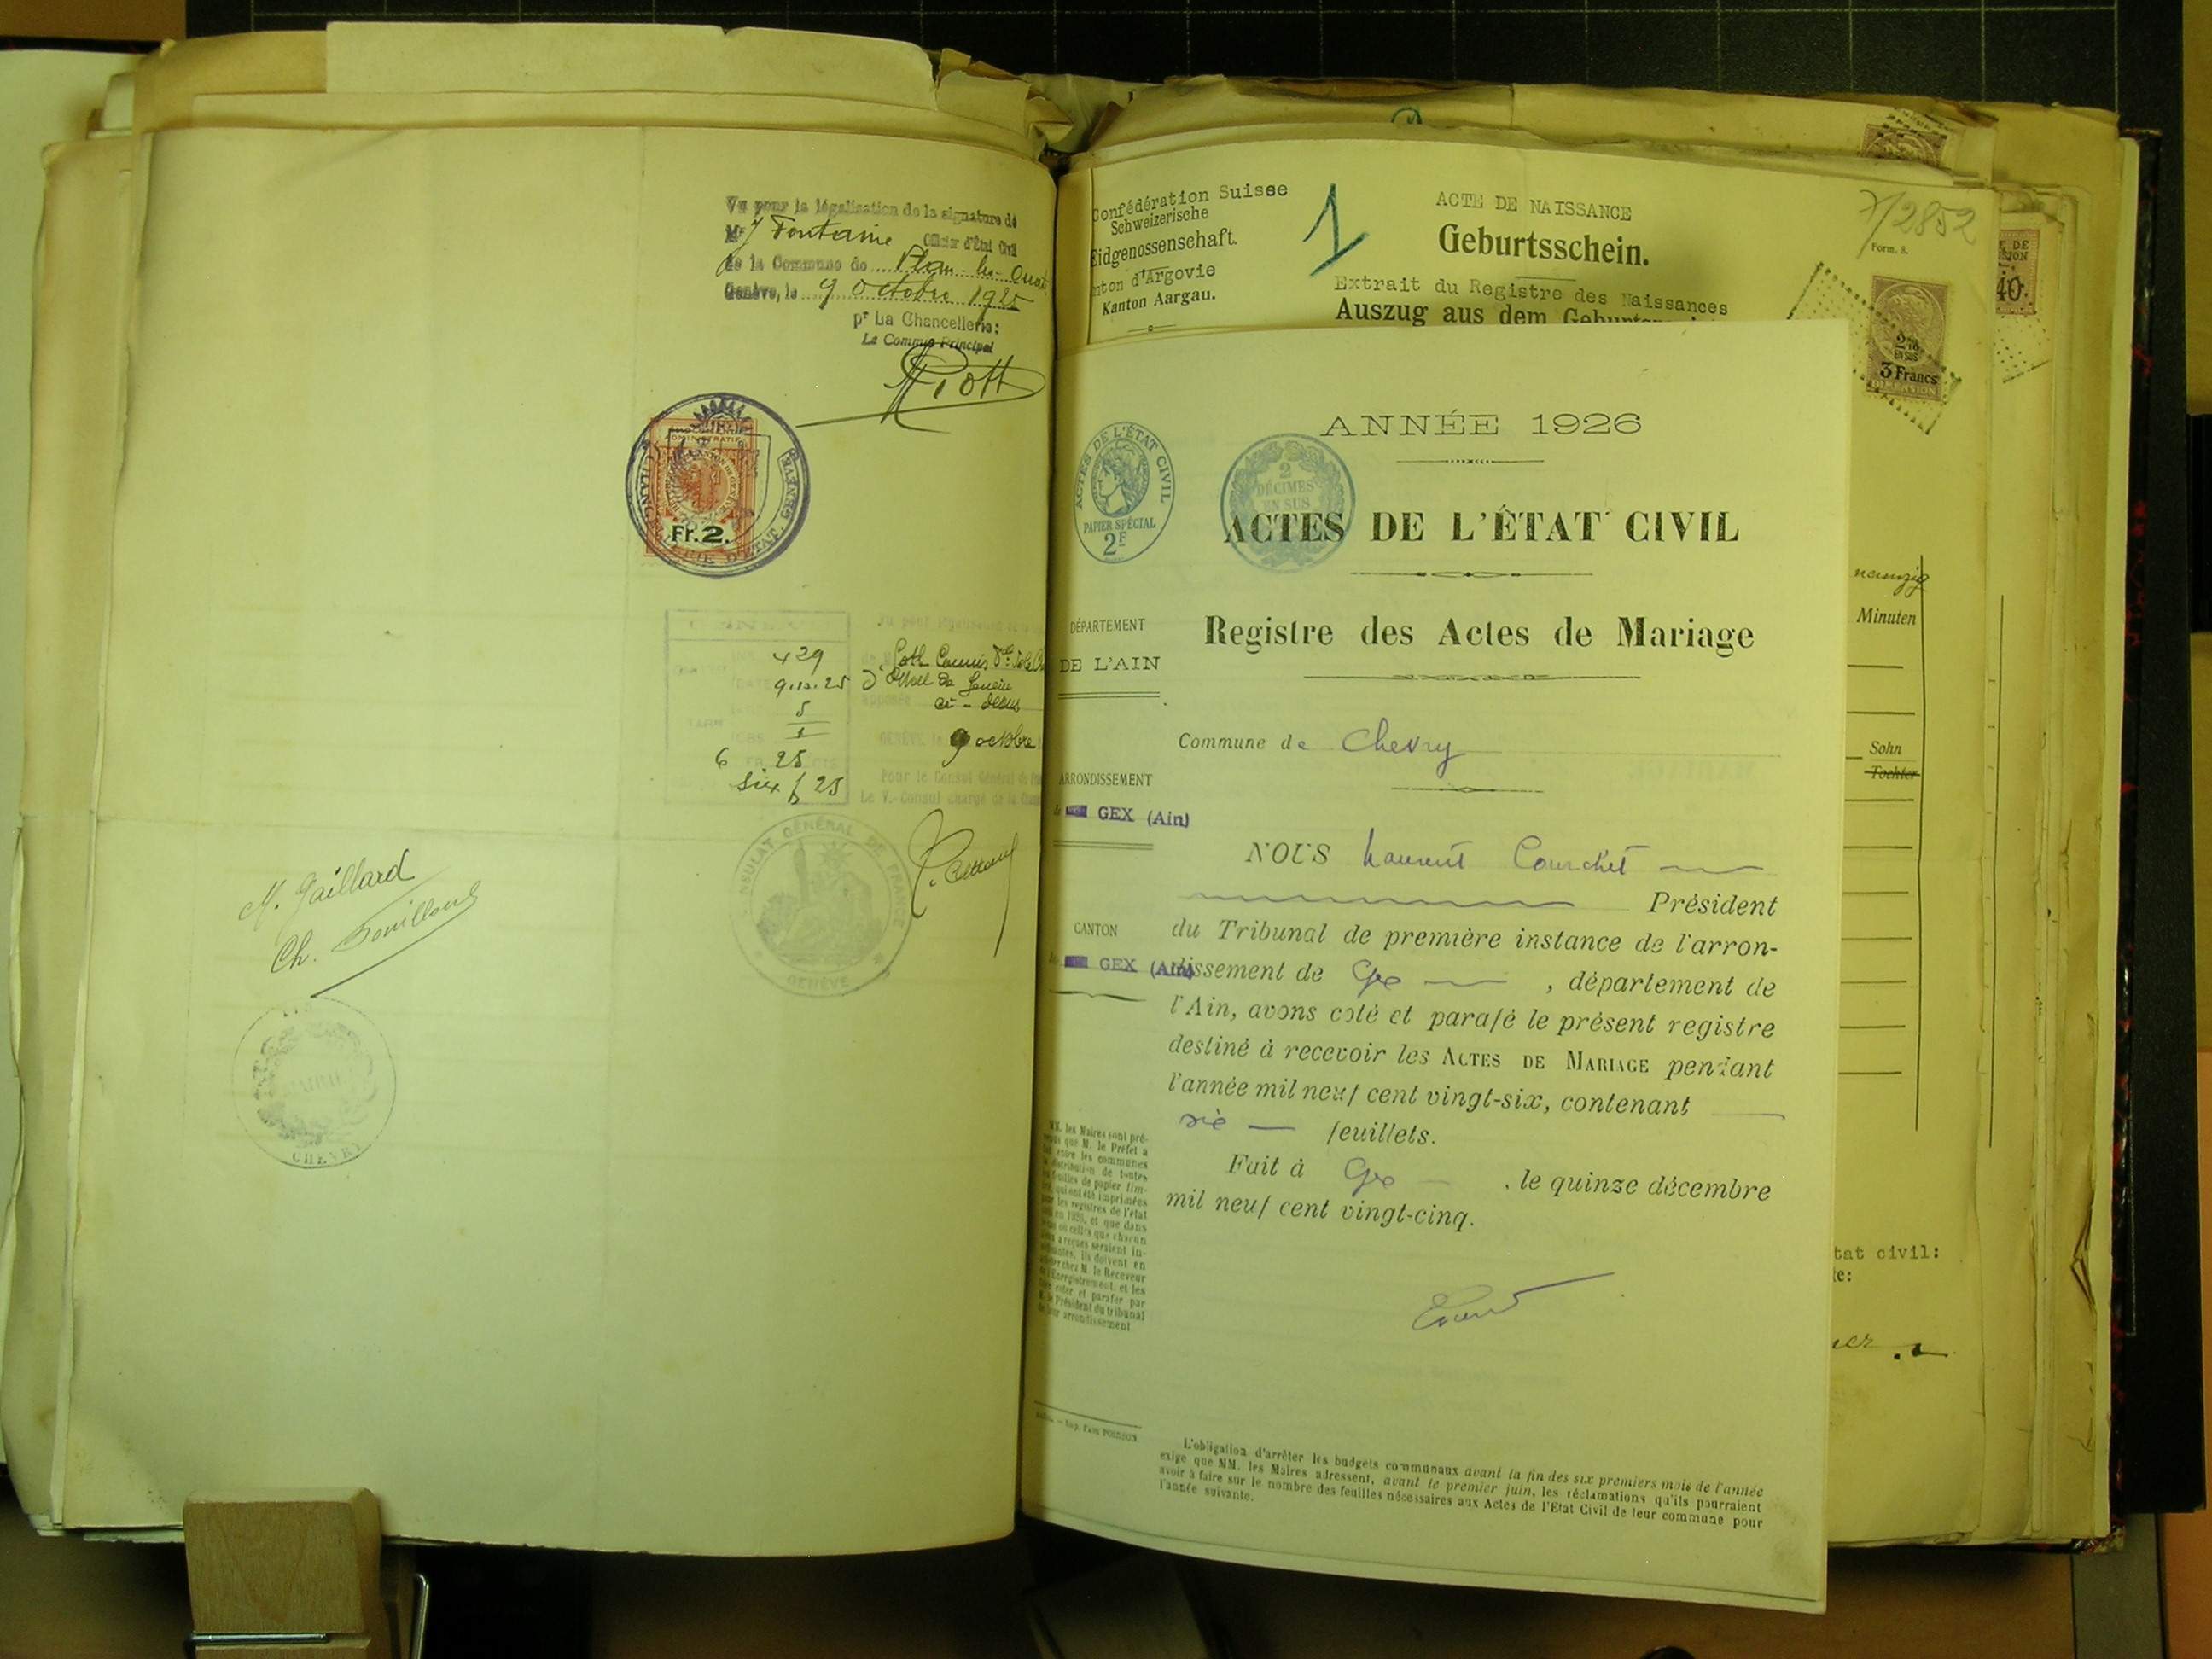 Vu pour la légalisation de la signature de
Mr J Fontaine Officier d'État Civil
de la Commune de Plan-les-Ouates
Genève, le 9 octobre 1925
pr La Chancellerie:
Le Commis Principal
CHANCELLERIE D'ETAT GENÈVE
Fr. 2.
429
9.10.25
ci-dessus
5
9 octobre
6 25
Six f 25
Pour le Consul Général de
Le V.-Consul chargé de la
CONSULAT GÉNÉRAL DE FRANCE
GENÈVE
M. Gaillard
Ch.
MAIRIE
CHEVRY
Confédération Suisse
Schweizerische
Eidgenossenschaft.
nton d'Argovie
Kanton Aargau.
1
ACTE DE NAISSANCE
Geburtsschein.
Extrait du Registre des Naissances
Auszug aus dem
7/2852
Form. 8.
2/10
EN SUS
3 Francs
DIMENSION
40
neunzig
Minuten
Sohn
Tochter
tat civil:
te:
ANNÉE 1926
ACTES DE L'ÉTAT CIVIL
PAPIER SPÉCIAL
2F
2
DÉCIMES
EN SUS
ACTES DE L'ÉTAT CIVIL
DÉPARTEMENT
DE L'AIN
Registre des Actes de Mariage
Commune de Chevry
ARRONDISSEMENT
de GEX (Ain)
NOUS Laurent Courchet
Président
CANTON
de GEX (Ain)
du Tribunal de première instance de l'arron-
dissement de Gex , département de
l'Ain, avons coté et parafé le présent registre
destiné à recevoir les ACTES DE MARIAGE pendant
l'année mil neuf cent vingt-six, contenant
six feuillets.
Fait à Gex , le quinze décembre
mil neuf cent vingt-cinq.
MM. les Maires sont pré-
venus que M. le Préfet a
fait entre les communes
la distribution de toutes
les feuilles de papier tim-
bré, qui ont été imprimées
pour les registres de l'état
civil en 1926, et que dans
le cas où celles que chacun
d'eux a reçues seraient in-
suffisantes, ils doivent en
acheter chez M. le Receveur
de l'Enregistrement, et les
faire coter et parafer par
M. le Président du tribunal
de leur arrondissement
L'obligation d'arrêter les budgets communaux avant la fin des six premiers mois de l'année
exige que MM. les Maires adressent, avant le premier juin, les réclamations qu'ils pourraient
avoir à faire sur le nombre des feuilles nécessaires aux Actes de l'État Civil de leur commune pour
l'année suivante.